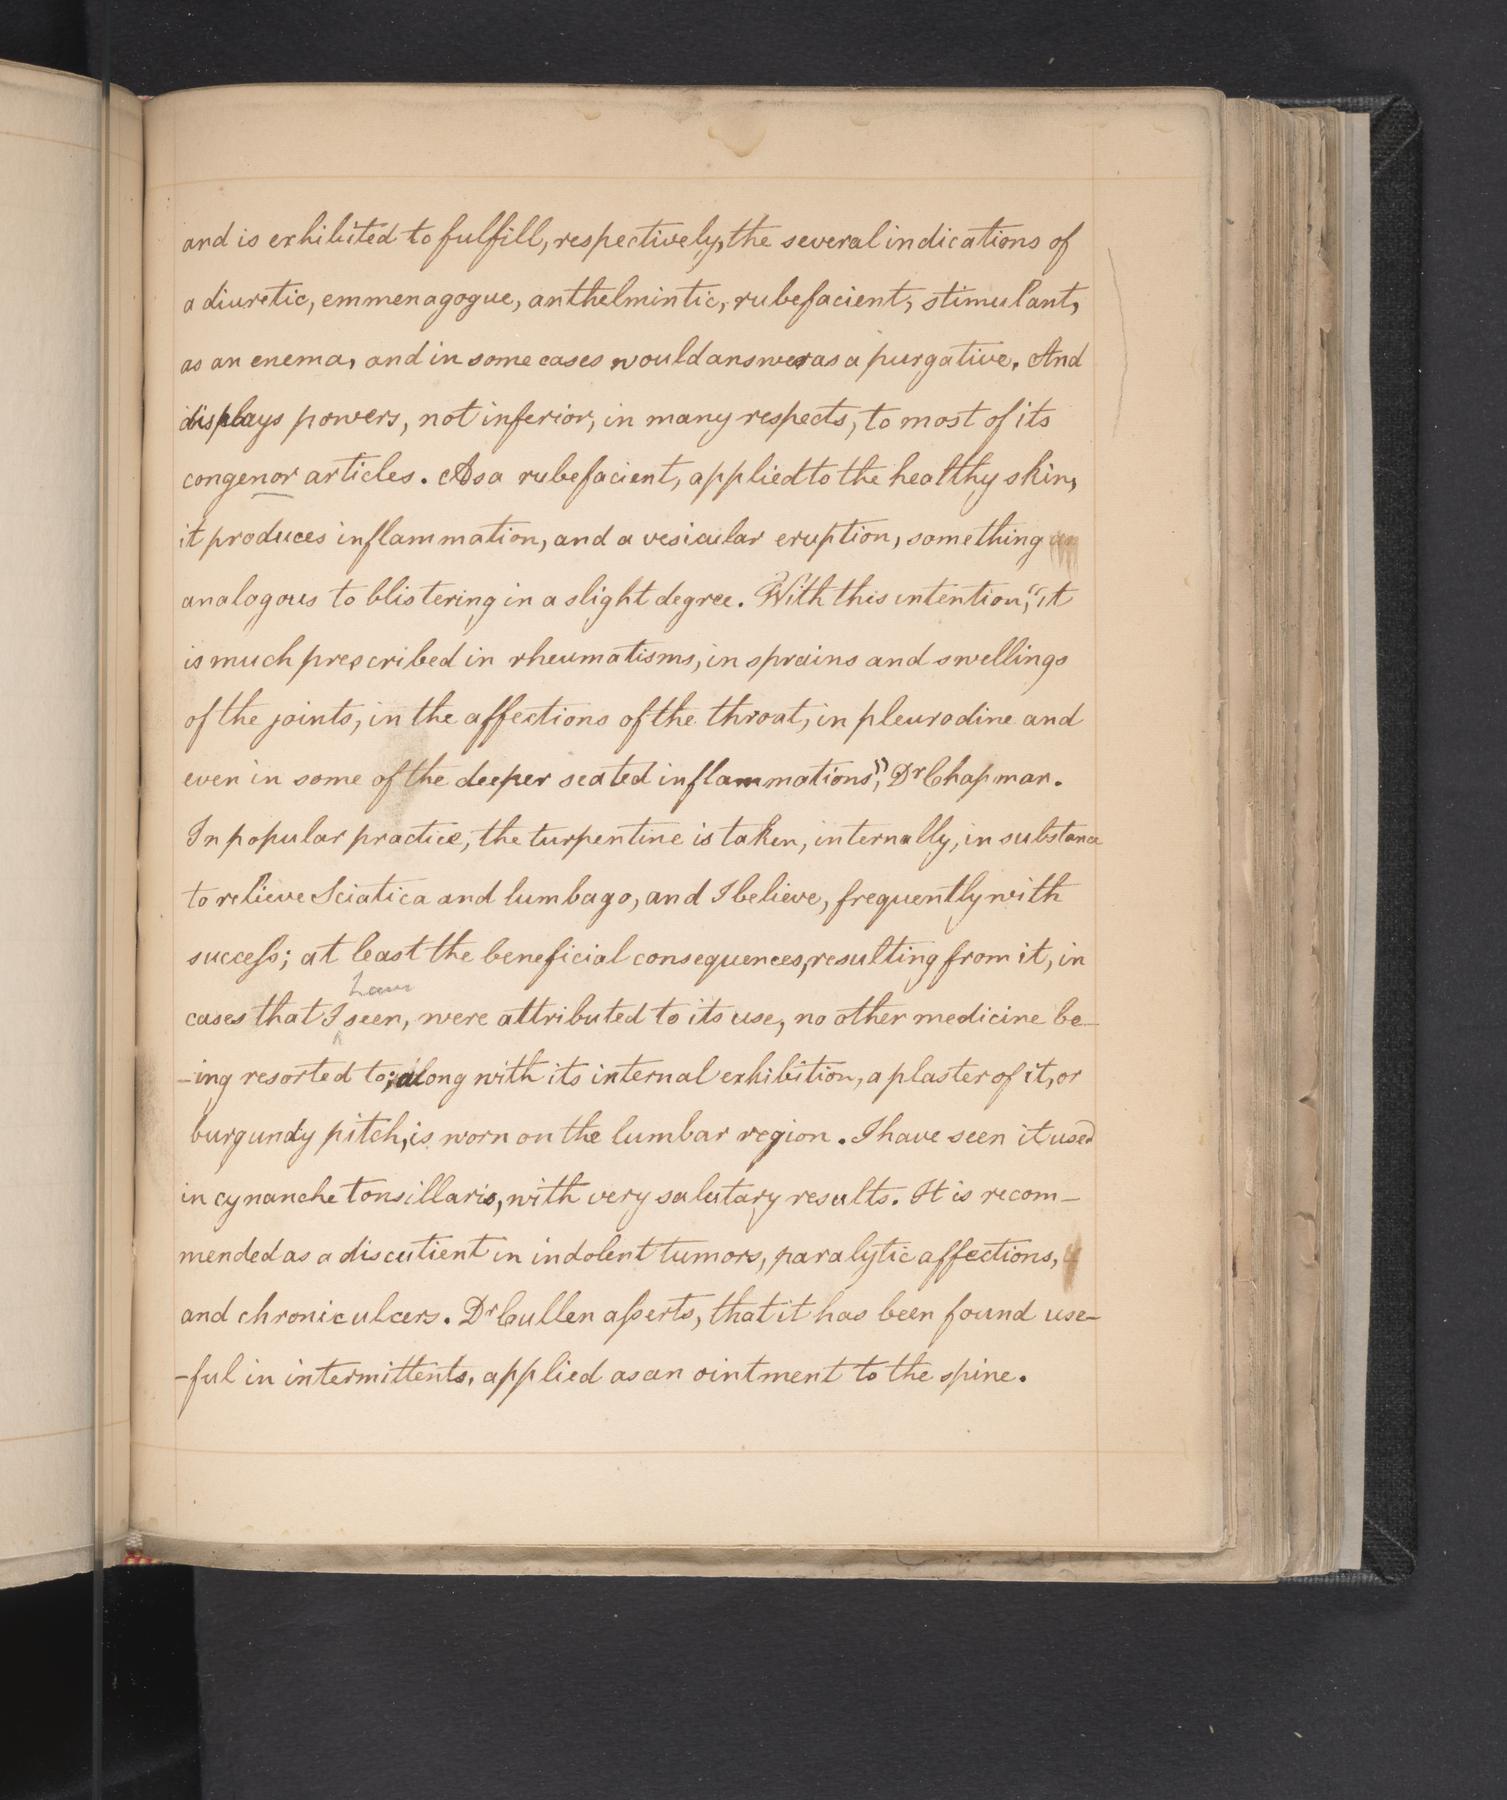 and is exhibited to fulfill, respectively, the several indications of
a diuretic, emmenagogue, anthelmintic, rubefacient, stimulant,
as an enema, and in some cases would answer as a purgative. And
displays powers, not inferior, in many respects, to most of its
congenor articles. As a rubefacient, applied to the healthy skin,
it produces inflammation, and a vesicular eruption, something
analogous to blistering in a slight degree. With this intention, "it
is much prescribed in rheumatisms, in sprains and swellings
of the joints, in the affections of the throat, in pleurodine and
even in some of the deeper seated inflammations", Dr Chapman.
In popular practice, the turpentine is taken, internally, in substance
to relieve Sciatica and lumbago, and I believe, frequently with
success; at least the beneficial consequences, resulting from it, in
have
cases that I ^ seen, were attributed to its use, no other medicine be-
-ing resorted to; along with its internal exhibition, a plaster of it, or
burgundy pitch, is worn on the lumbar region. I have seen it used
in cynanche tonsillaris, with very salutary results. It is recom-
mended as a discutient in indolent tumors, paralytic affections,
and chronic ulcers. Dr Cullen asserts, that it has been found use-
-ful in intermittents, applied as an ointment to the spine.